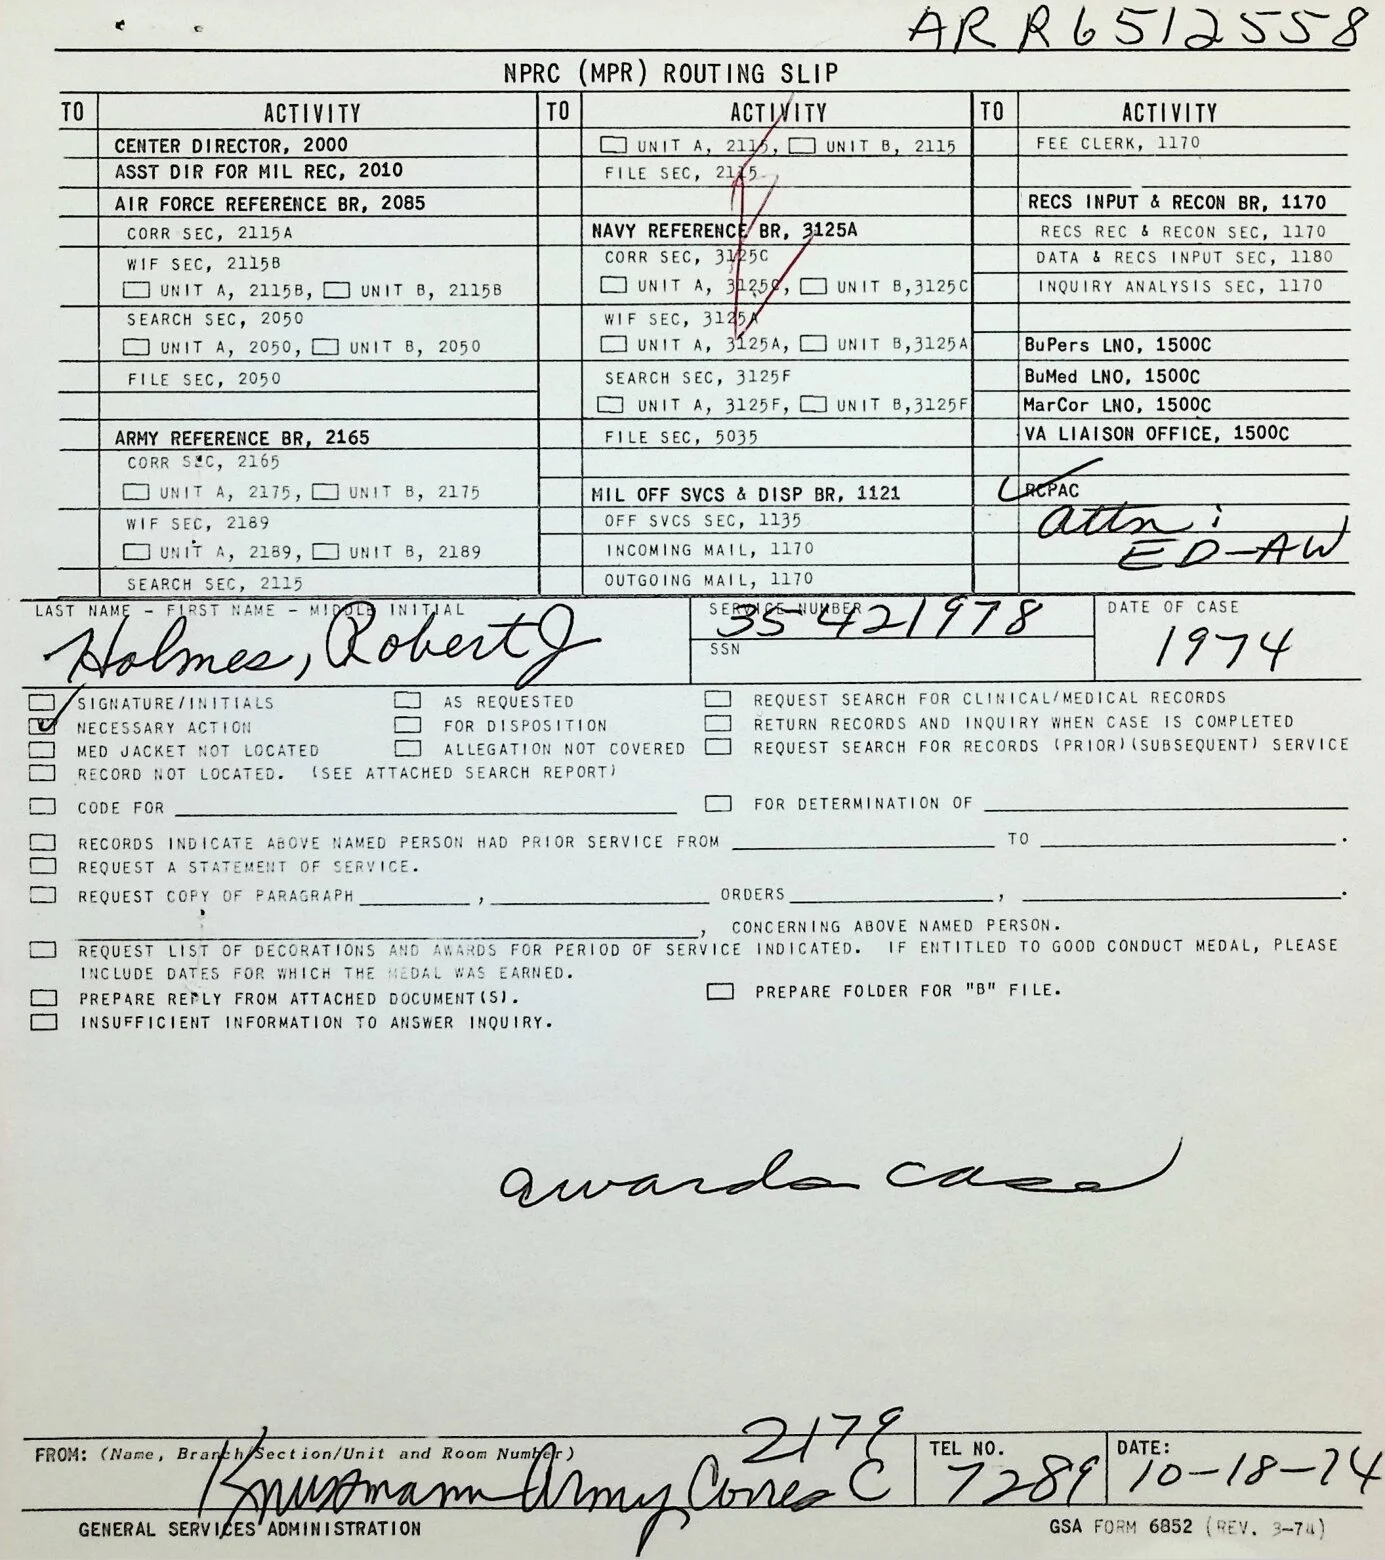 ARR6512558
NPRC (MPR) ROUTING SLIP
TO ACTIVITY TO ACTIVITY TO ACTIVITY
CENTER DIRECTOR, 2000
ASST DIR FOR MIL REC, 2010
AIR FORCE REFERENCE BR, 2085
CORR SEC, 2115A
WIF SEC, 2115B
UNIT A, 2115B, UNIT B, 2115B
SEARCH SEC, 2050
UNIT A, 2050, UNIT B, 2050
FILE SEC, 2050
ARMY REFERENCE BR, 2165
CORR SEC, 2165
UNIT A, 2175, UNIT B, 2175
WIF SEC, 2189
UNIT A, 2189, UNIT B, 2189
SEARCH SEC, 2115
UNIT A, 2115, UNIT B, 2115
FILE SEC, 2115
NAVY REFERENCE BR, 3125A
CORR SEC, 3125C
UNIT A, 3125C, UNIT B,3125C
WIF SEC, 3125A
UNIT A, 3125A, UNIT B,3125A
SEARCH SEC, 3125F
UNIT A, 3125F, UNIT B,3125F
FILE SEC, 5035
MIL OFF SVCS & DISP BR, 1121
OFF SVCS SEC, 1135
INCOMING MAIL, 1170
OUTGOING MAIL, 1170
FEE CLERK, 1170
RECS INPUT & RECON BR, 1170
RECS REC & RECON SEC, 1170
DATA & RECS INPUT SEC, 1180
INQUIRY ANALYSIS SEC, 1170
BuPers LNO, 1500C
BuMed LNO, 1500C
MarCor LNO, 1500C
VA LIAISON OFFICE, 1500C
RCPAC
Attn:
ED-AW
LAST NAME - FIRST NAME - MIDDLE INITIAL
Holmes, Robert J
SERVICE NUMBER
35 421978
SSN
DATE OF CASE
1974
SIGNATURE/INITIALS AS REQUESTED REQUEST SEARCH FOR CLINICAL/MEDICAL RECORDS
NECESSARY ACTION FOR DISPOSITION RETURN RECORDS AND INQUIRY WHEN CASE IS COMPLETED
MED JACKET NOT LOCATED ALLEGATION NOT COVERED REQUEST SEARCH FOR RECORDS (PRIOR)(SUBSEQUENT) SERVICE
RECORD NOT LOCATED. (SEE ATTACHED SEARCH REPORT)
CODE FOR FOR DETERMINATION OF
RECORDS INDICATE ABOVE NAMED PERSON HAD PRIOR SERVICE FROM TO .
REQUEST A STATEMENT OF SERVICE.
REQUEST COPY OF PARAGRAPH , ORDERS , .
, CONCERNING ABOVE NAMED PERSON.
REQUEST LIST OF DECORATIONS AND AWARDS FOR PERIOD OF SERVICE INDICATED. IF ENTITLED TO GOOD CONDUCT MEDAL, PLEASE
INCLUDE DATES FOR WHICH THE MEDAL WAS EARNED.
PREPARE REPLY FROM ATTACHED DOCUMENT(S). PREPARE FOLDER FOR "B" FILE.
INSUFFICIENT INFORMATION TO ANSWER INQUIRY.
awards case
FROM: (Name, Branch/Section/Unit and Room Number)
2179
Knusmann Army Corres C
TEL NO.
7289
DATE:
10-18-74
GENERAL SERVICES ADMINISTRATION
GSA FORM 6852 (REV. 3-74)